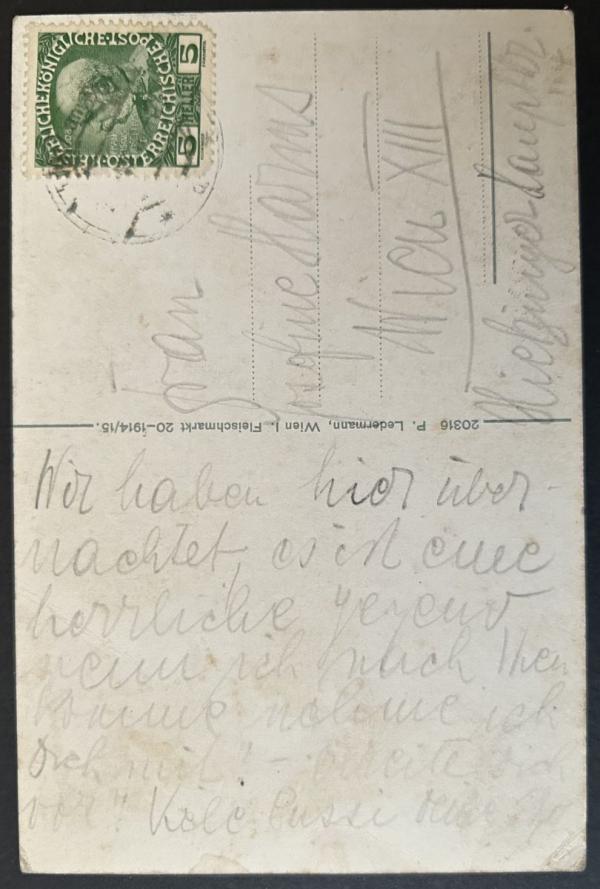 KAISERLICHE KÖNIGLICHE ÖSTERREICHISCHE POST
5 HELLER 5
Frau
Josefine Harms
Wien XIII
Hietzinger Hauptstr.
20316 P. Ledermann, Wien I. Fleischmarkt 20–1914/15.
Wir haben hier über-
nachtet, es ist eine
herrliche Gegend
wenn ich nach Wien
komme nehme ich
Dich mit! –
vor! Viele Bussi deine